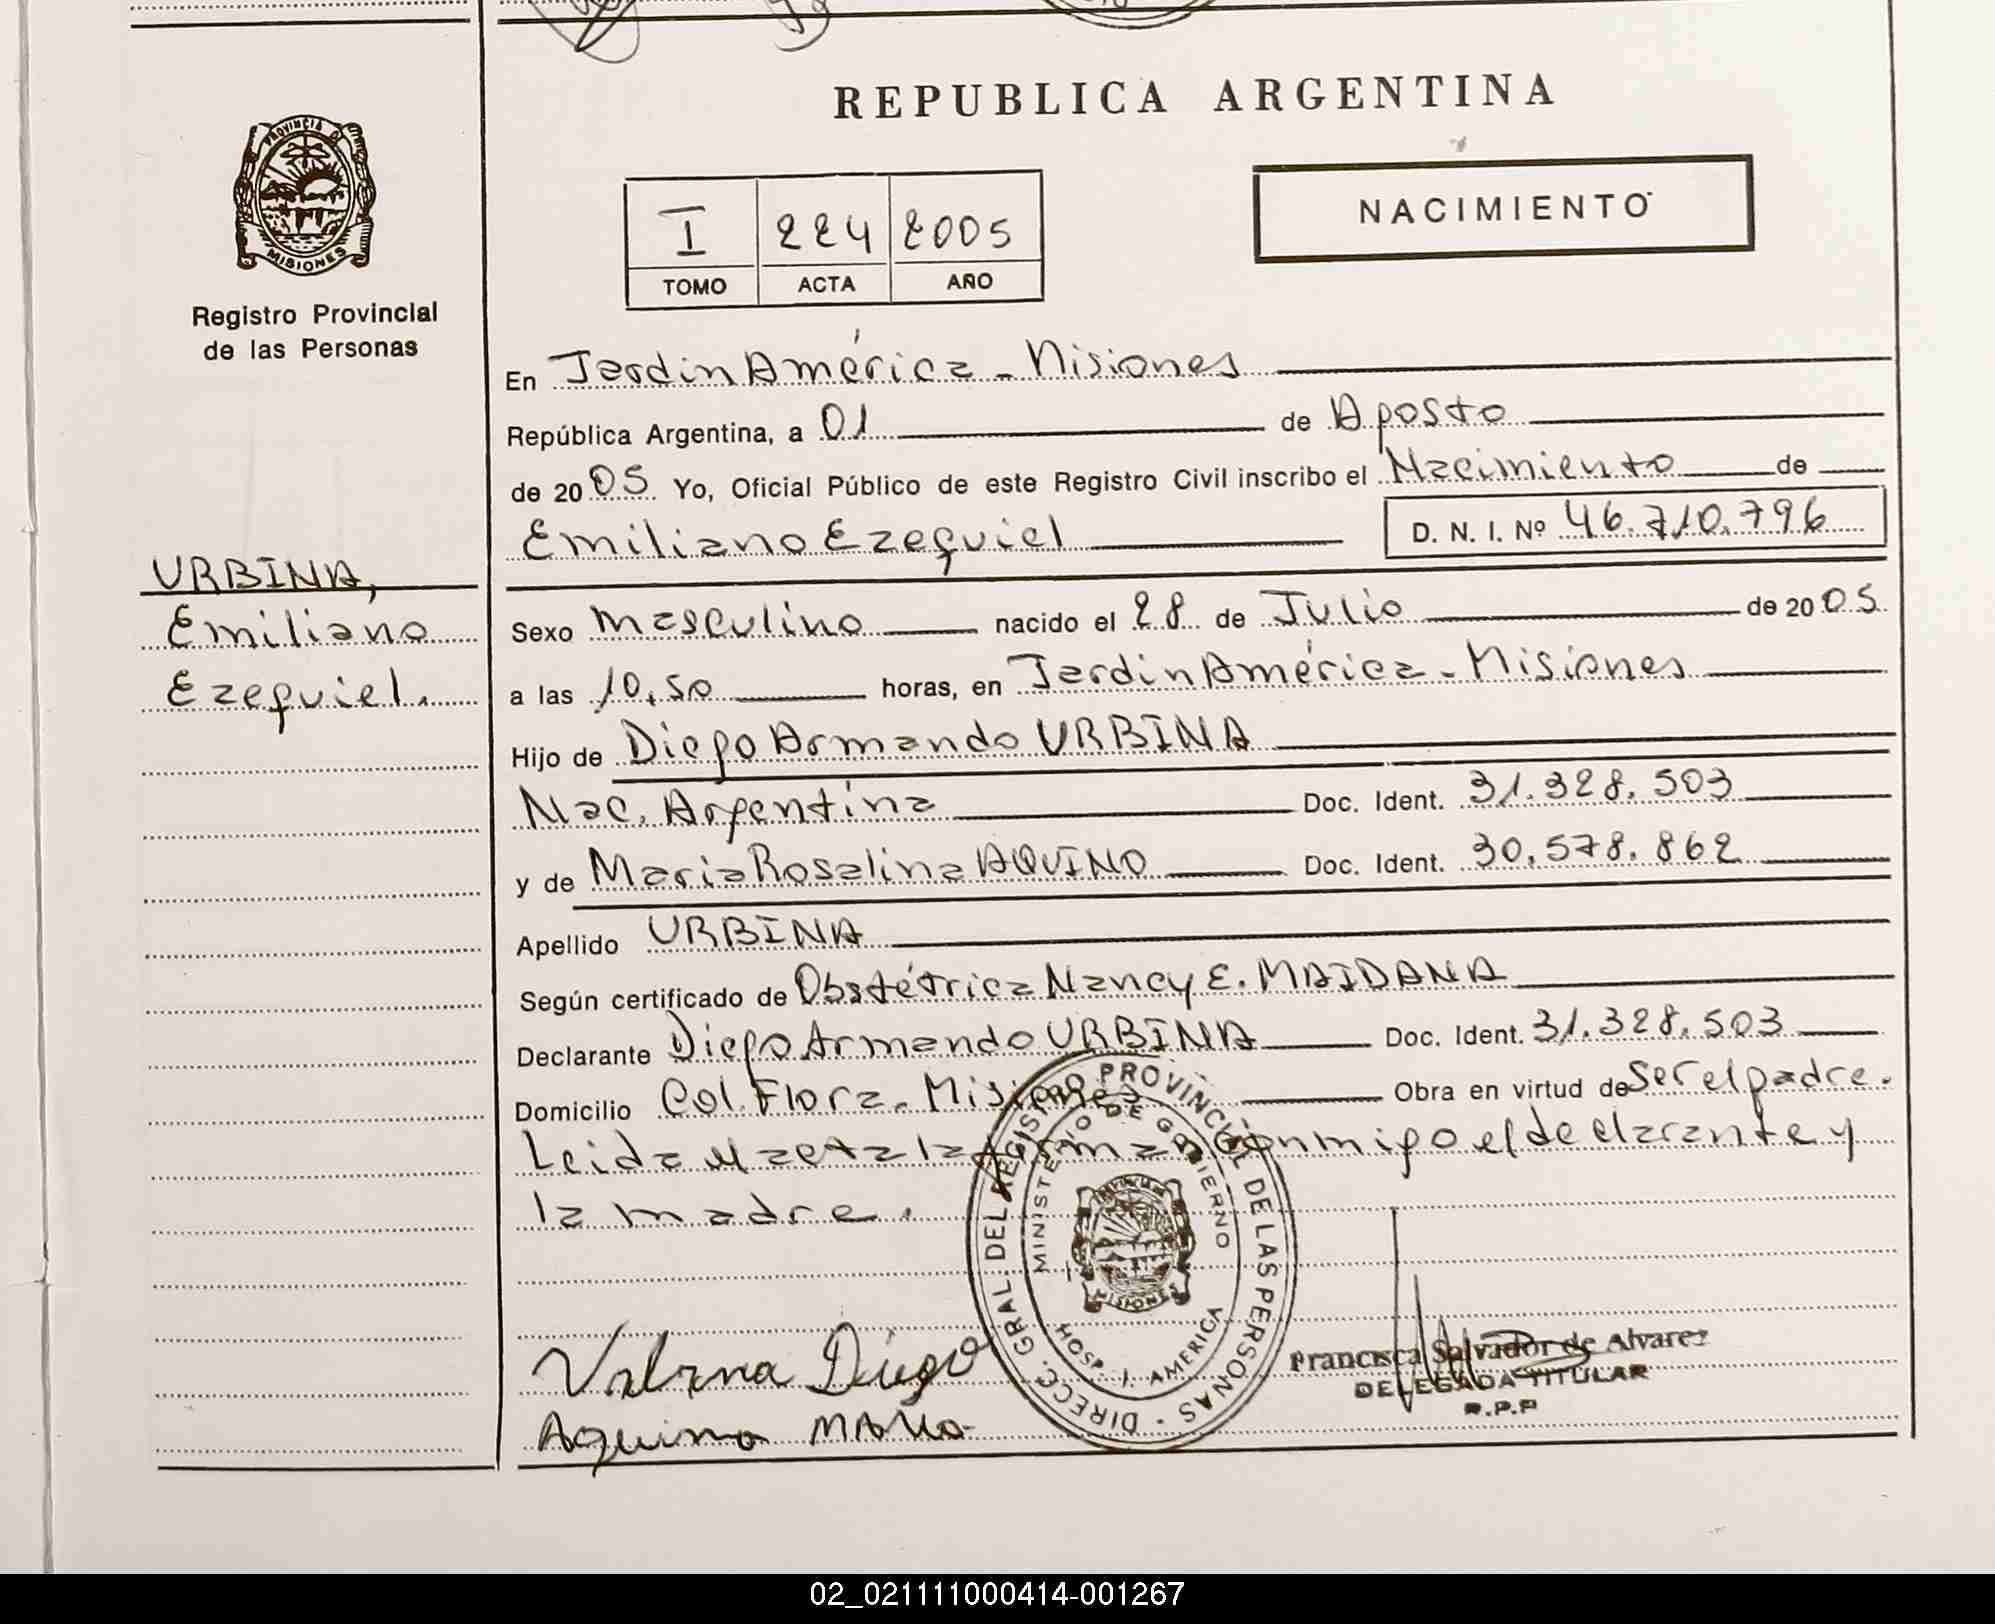 REPUBLICA ARGENTINA
PROVINCIA DE
MISIONES
Registro Provincial
de las Personas
I 224 2005
TOMO ACTA AÑO
NACIMIENTO
En Jardin América - Misiones
República Argentina, a 01 de Agosto
de 2005 Yo, Oficial Público de este Registro Civil inscribo el Nacimiento de
Emiliano Ezequiel D. N. I. Nº 46.710.796
URBINA,
Emiliano
Ezequiel.
Sexo Masculino nacido el 28 de Julio de 2005
a las 10,50 horas, en Jardin América - Misiones
Hijo de Diego Armando URBINA
Nac. Argentina Doc. Ident. 31.328.503
y de Maria Rosalina AQUINO Doc. Ident. 30.578.862
Apellido URBINA
Según certificado de Obstétrica Nancy E. MAIDANA
Declarante Diego Armando URBINA Doc. Ident. 31.328.503
Domicilio Col. Flora - Misiones Obra en virtud de Ser el padre.
Leida el acta la firma conmigo el declarante y
la madre.
DIRECC. GRAL. DEL REGISTRO PROVINCIAL DE LAS PERSONAS
MINISTERIO DE GOBIERNO
MISIONES
HOSP. J. AMERICA
Diego
Aquino
Francisca Salvador de Alvarez
DELEGADA TITULAR
R.P.P
02_021111000414-001267